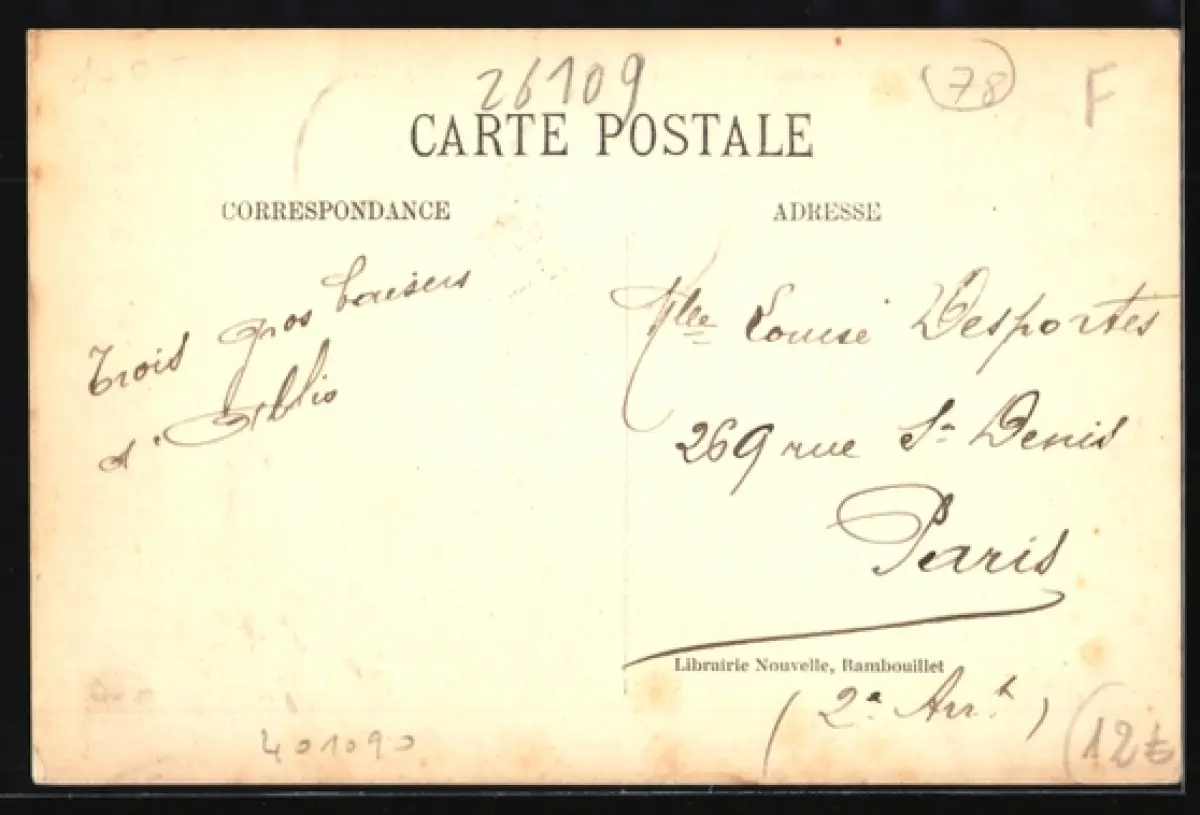 26109
78
F
CARTE POSTALE
CORRESPONDANCE
ADRESSE
Trois gros baisers
d'Ablis
Mlle Louise Desportes
269 rue St Denis
Paris
Librairie Nouvelle, Rambouillet
(2e Arrt)
401090
12